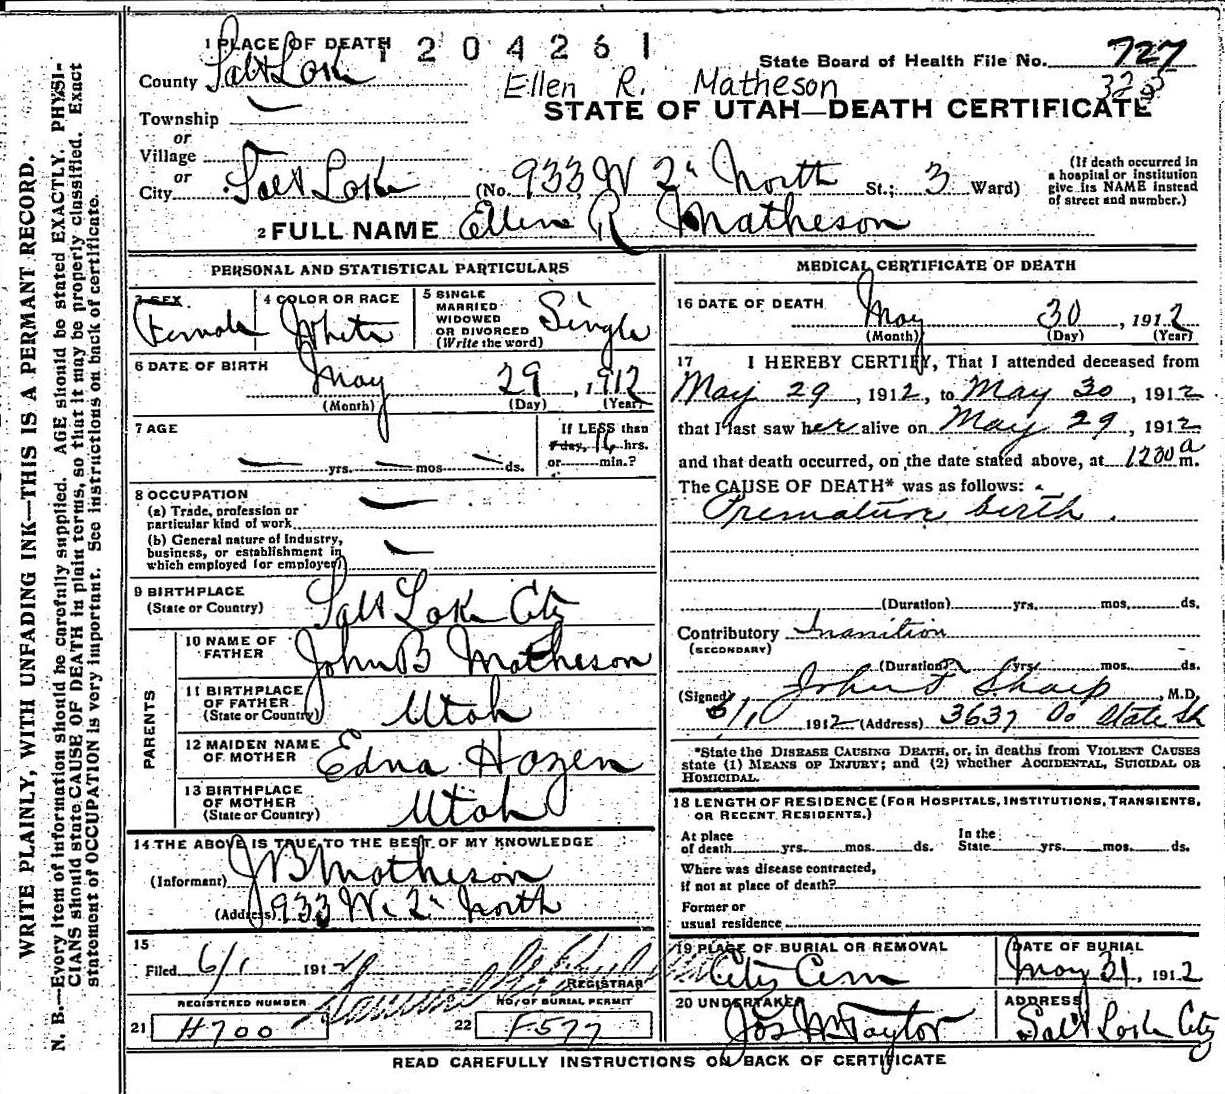 WRITE PLAINLY, WITH UNFADING INK—THIS IS A PERMANT RECORD.
N. B.—Every item of information should be carefully supplied. AGE should be stated EXACTLY. PHYSI-
CIANS should state CAUSE OF DEATH in plain terms, so that it may be properly classified. Exact
statement of OCCUPATION is very important. See instructions on back of certificate.
1 PLACE OF DEATH 1204261
State Board of Health File No. 727
County Salt Lake
Ellen R. Matheson
STATE OF UTAH—DEATH CERTIFICATE
Township
or
Village
or
City Salt Lake (No. 933 W 2" North St.; 3 Ward)
(If death occurred in
a hospital or institution
give its NAME instead
of street and number.)
2 FULL NAME Ellen R Matheson
PERSONAL AND STATISTICAL PARTICULARS
3 SEX
Female
4 COLOR OR RACE
White
5 SINGLE
MARRIED
WIDOWED
OR DIVORCED
(Write the word)
Single
6 DATE OF BIRTH
May 29, 1912
(Month) (Day) (Year)
7 AGE
yrs. mos ds.
If LESS than
1 day, 16 hrs.
or min.?
8 OCCUPATION
(a) Trade, profession or
particular kind of work
(b) General nature of Industry,
business, or establishment in
which employed (or employer)
9 BIRTHPLACE
(State or Country)
Salt Lake City
PARENTS
10 NAME OF
FATHER
John B Matheson
11 BIRTHPLACE
OF FATHER
(State or Country)
Utah
12 MAIDEN NAME
OF MOTHER
Edna Hozen
13 BIRTHPLACE
OF MOTHER
(State or Country)
Utah
14 THE ABOVE IS TRUE TO THE BEST OF MY KNOWLEDGE
(Informant) J B Matheson
(Address) 933 W. 2" North
15
Filed 6/1 1912
REGISTRAR
REGISTERED NUMBER
21 H700
NO. OF BURIAL PERMIT
22 F577
MEDICAL CERTIFICATE OF DEATH
16 DATE OF DEATH
May 30, 1912
(Month) (Day) (Year)
17 I HEREBY CERTIFY, That I attended deceased from
May 29, 1912, to May 30, 1912
that I last saw her alive on May 29, 1912
and that death occurred, on the date stated above, at 1230 a m.
The CAUSE OF DEATH* was as follows:
Premature birth.
(Duration) yrs. mos. ds.
Contributory Inanition
(SECONDARY)
(Duration) yrs. mos. ds.
(Signed) John F Sharp, M.D.
6/1 1912 (Address) 3637 So State St
*State the DISEASE CAUSING DEATH, or, in deaths from VIOLENT CAUSES
state (1) MEANS OF INJURY; and (2) whether ACCIDENTAL, SUICIDAL OR
HOMICIDAL.
18 LENGTH OF RESIDENCE (FOR HOSPITALS, INSTITUTIONS, TRANSIENTS,
OR RECENT RESIDENTS.)
At place
of death yrs. mos. ds.
In the
State yrs. mos. ds.
Where was disease contracted,
if not at place of death?
Former or
usual residence
19 PLACE OF BURIAL OR REMOVAL
City Cem
DATE OF BURIAL
May 31, 1912
20 UNDERTAKER
Jos Wm Taylor
ADDRESS
Salt Lake City
READ CAREFULLY INSTRUCTIONS ON BACK OF CERTIFICATE